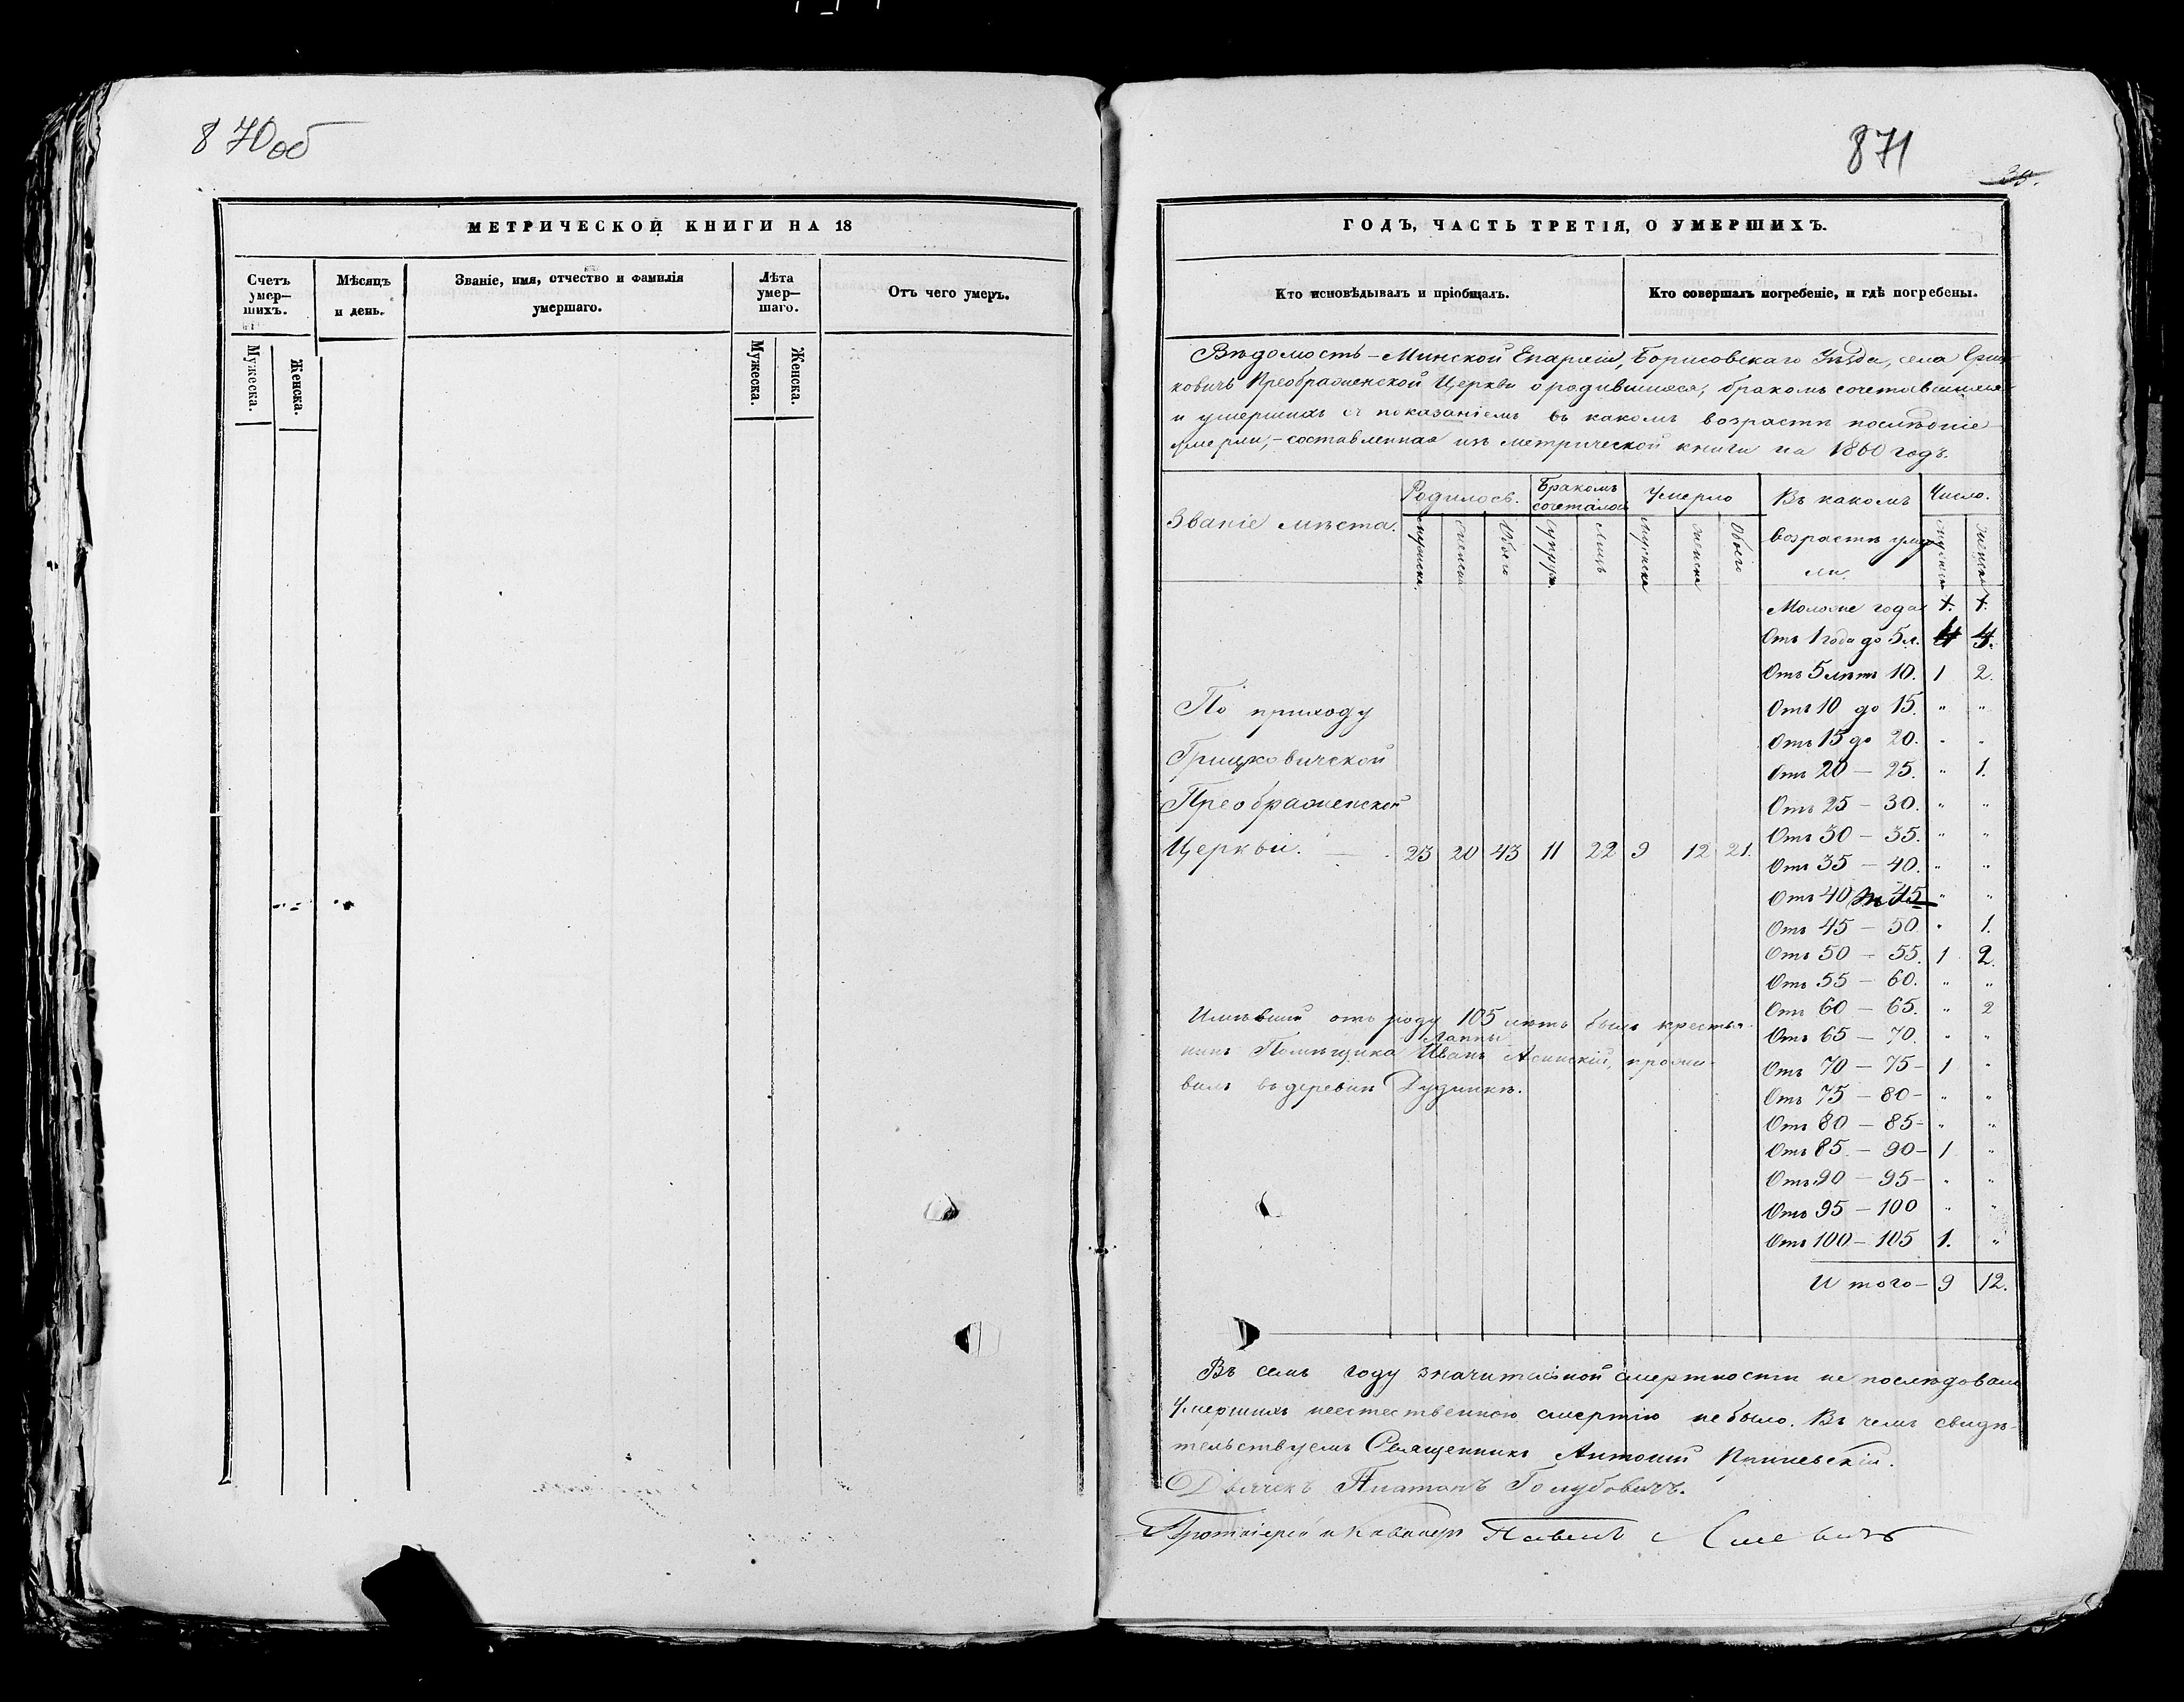 870об
МЕТРИЧЕСКОЙ КНИГИ НА 18
Счетъ умер—шихъ.
Мужеска.
Женска.
Мѣсяцъ и день.
Званіе, имя, отчество и фамилія умершаго.
Лѣта умер—шаго.
Мужеска.
Женска.
Отъ чего умеръ.
871
39.
ГОДЪ, ЧАСТЬ ТРЕТІЯ, О УМЕРШИХЪ.
Кто исповѣдывалъ и пріобщалъ.
Кто совершалъ погребеніе, и гдѣ погребены.
Вѣдомость – Минской Епархіи, Борисовскаго Уѣзда, села Гриц-
ковичъ Преображенской Церкви о родившихся, бракомъ сочетавшихся
и умершихъ съ показаніемъ въ какомъ возрастѣ послѣдніе
умерли, – составленная изъ метрической книги на 1860 годъ.
Званіе мѣста.
Родилось.
Мужеска
Женска
Обоего
Бракомъ сочеталось
Супруж.
Лицъ
Умерло
Мужеска
Женска
Обоего
Въ какомъ возрастѣ умерли.
Число.
Мужеска
Женска
По приходу
Грицковичской
Преображенской
Церкви. — 23 20 43 11 22 9 12 21.
Моложе года
Отъ 1 года до 5 л. 4 4.
Отъ 5 лѣтъ 10. 1 2.
Отъ 10 до 15. " "
Отъ 15 до 20. " "
Отъ 20 — 25. " 1.
Отъ 25 — 30. " "
Отъ 30 — 35. " "
Отъ 35 — 40. " "
Отъ 40 45 " "
Отъ 45 — 50. " 1.
Отъ 50 — 55. 1 2.
Отъ 55 — 60. " "
Отъ 60 — 65. " 2
Отъ 65 — 70. " "
Отъ 70 — 75 – 1 "
Отъ 75 — 80 – " "
Отъ 80 — 85 – " "
Отъ 85 — 90 – 1 "
Отъ 90 — 95 – " "
Отъ 95 — 100 " "
Отъ 100 — 105 1. "
Итого – 9 12.
Имѣвшій отъ роду 105 лѣтъ былъ крестья-
нинъ Помѣщика Лаппы Иванъ прожи-
валъ въ деревнѣ
Въ семъ году значительной смертности не послѣдовало
Умершихъ неестественною смертію не было. Въ чемъ свидѣ-
тельствуемъ Священникъ Антоній
Дьячекъ Платонъ Голубовичъ.
Протоіерей и Кавалеръ Павелъ